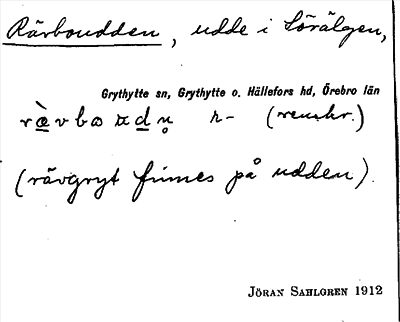 Rävboudden, udde i Sörälgen,
Grythytte sn, Grythytte o. Hällefors hd, Örebro län
(renskr.)
(rävgryt finnes på udden).
JÖRAN SAHLGREN 1912